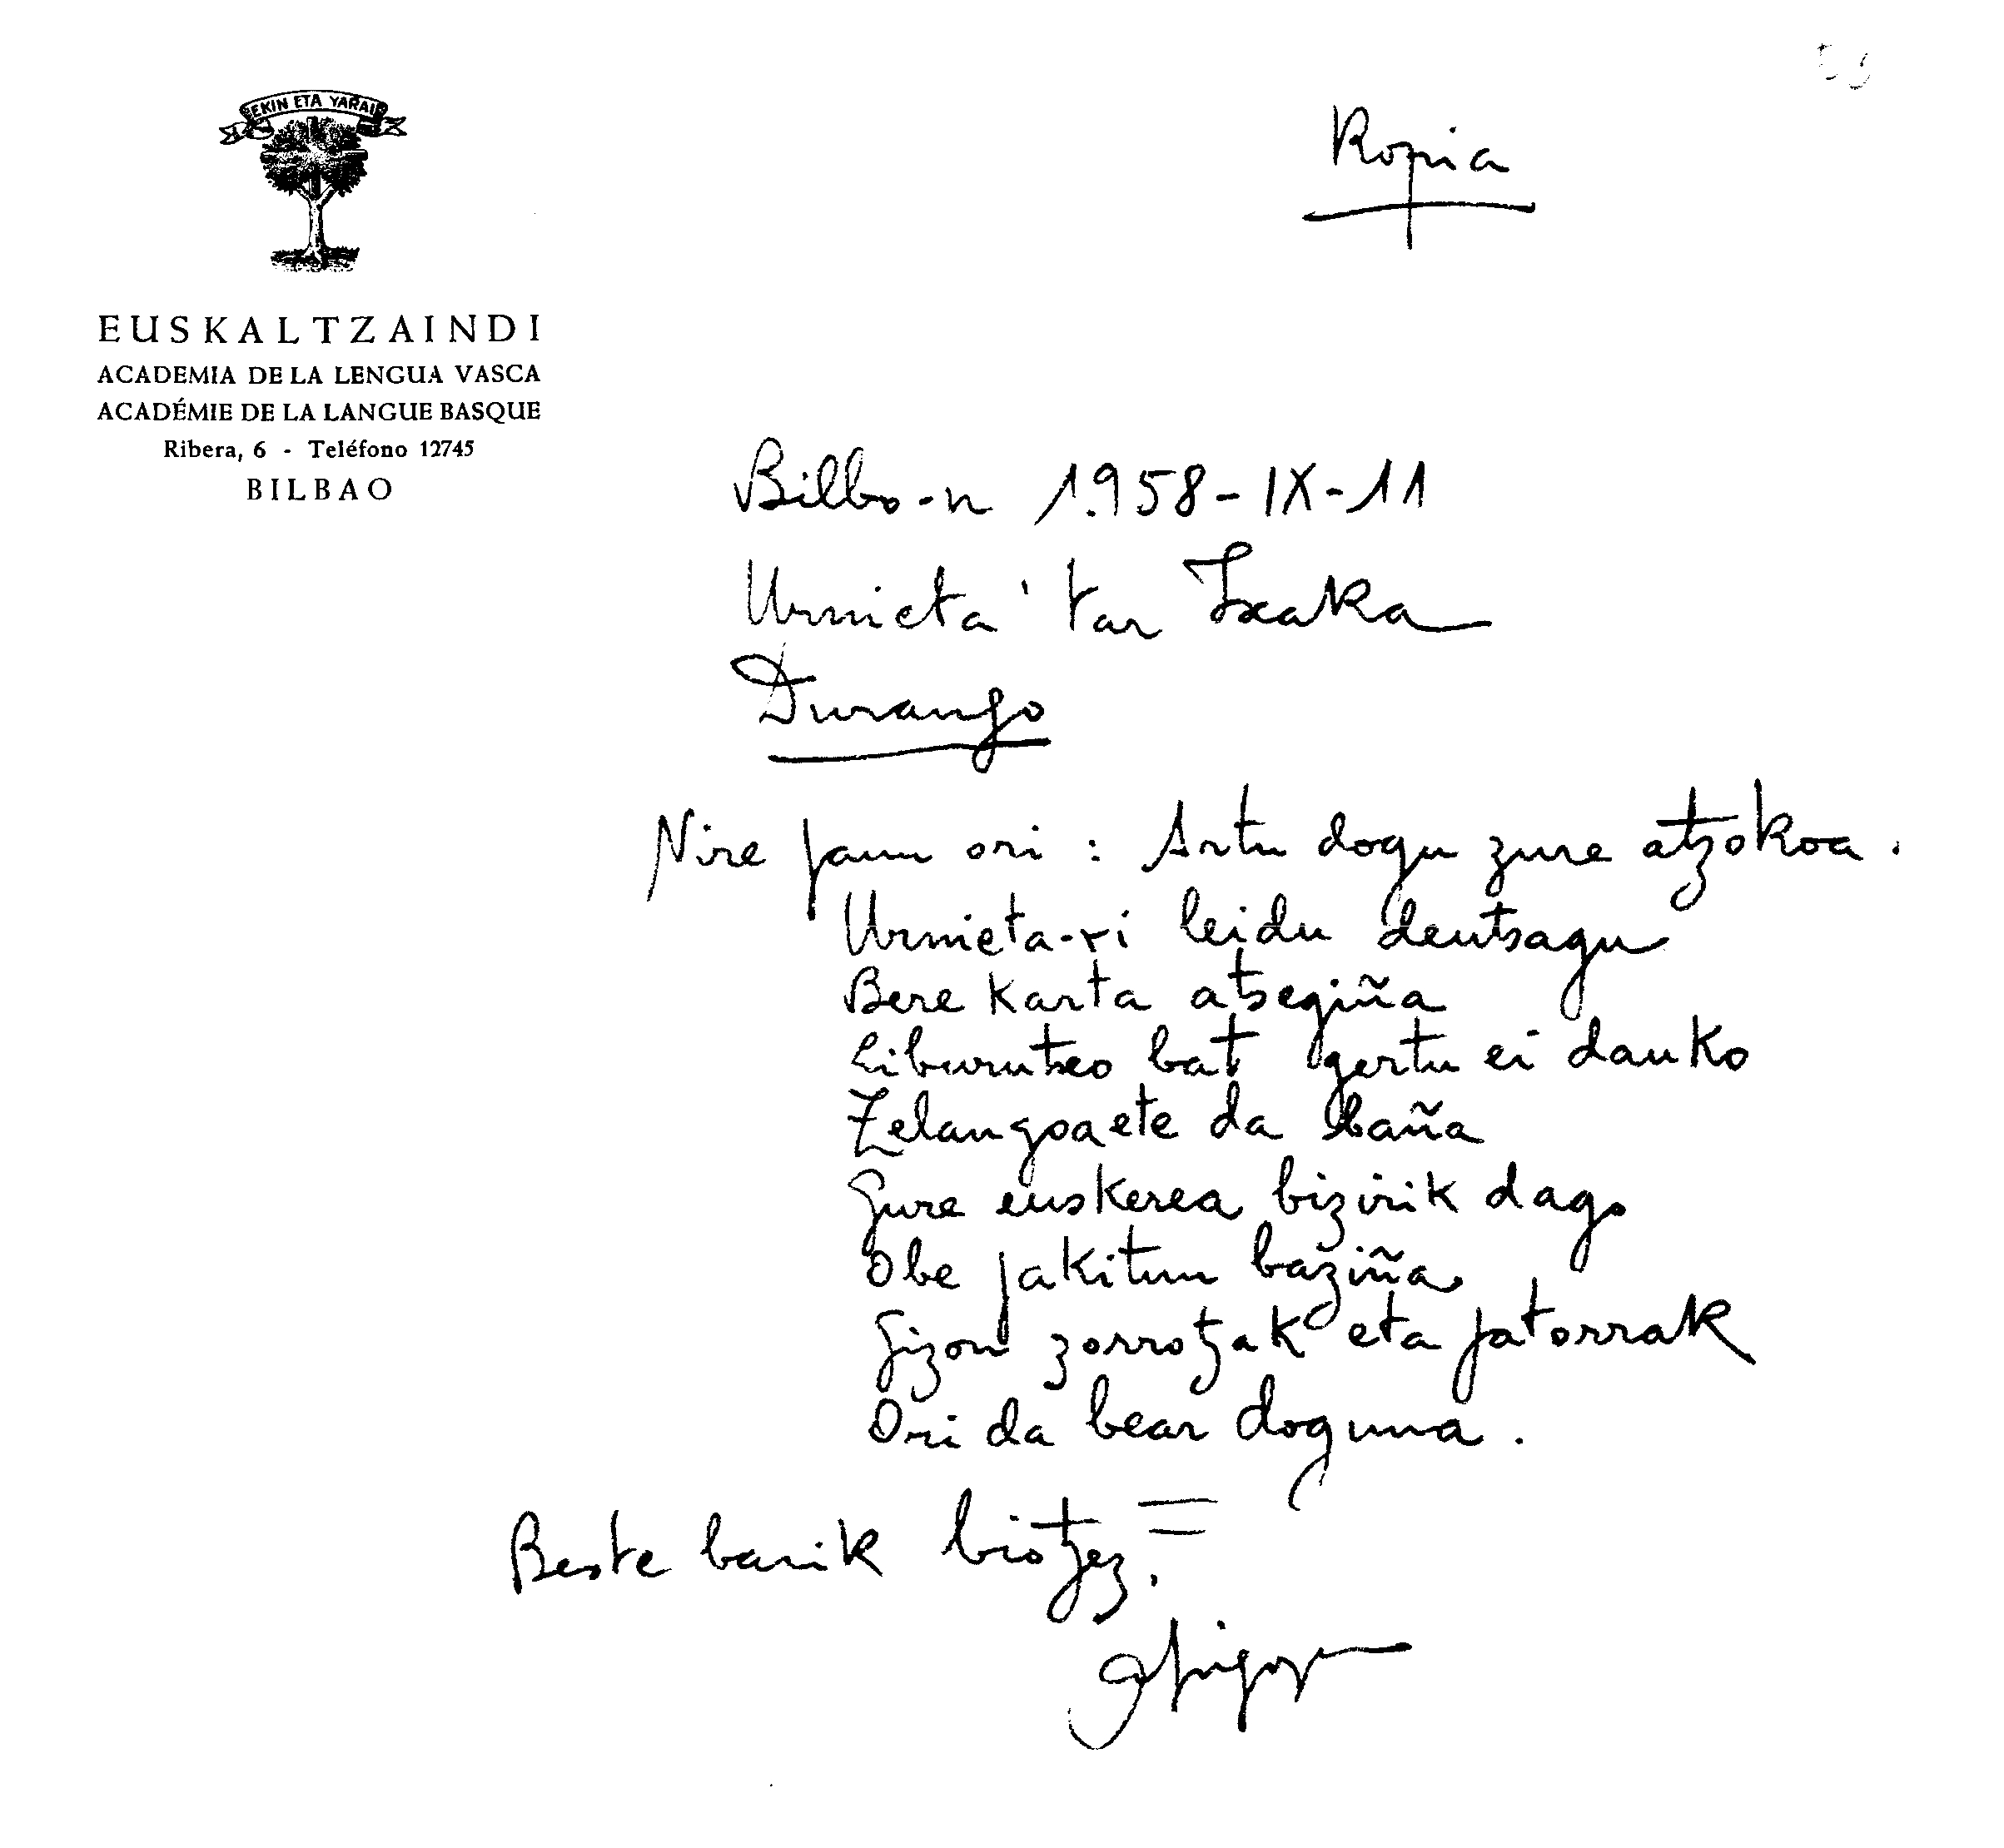 EKIN ETA YARAI
Kopia
EUSKALTZAINDI
ACADEMIA DE LA LENGUA VASCA
ACADÉMIE DE LA LANGUE BASQUE
Ribera, 6 - Teléfono 12745
BILBAO
Bilbo-n 1.958-IX-11
Urmieta'tar Ixaka
Durango
Nire jaun ori: Artu dogu zure atzokoa.
Urmieta-ri leidu deutsagu
Bere karta atsegiña
Liburutxo bat gertu ei dauko
Zelangoa ete da baña
Gure euskerea bizirik dago
Obe jakitun baziña.
Gizon zorrotzak eta jatorrak
Ori da bear doguna.
Beste barik biotzez.